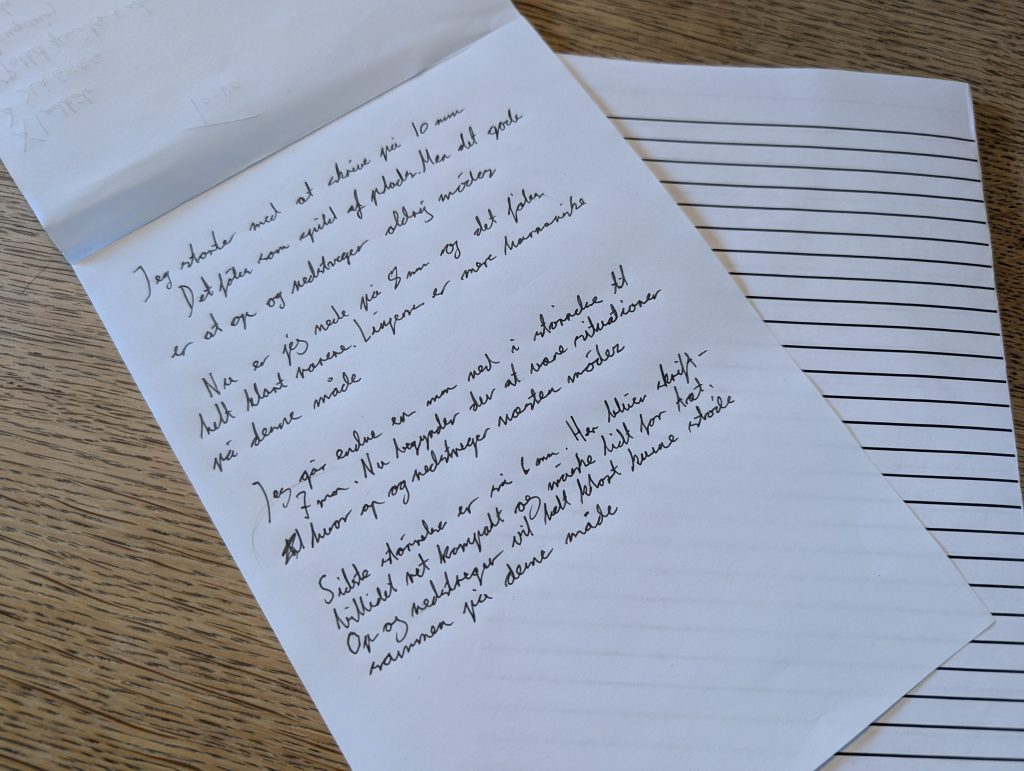 Jeg starter med at skrive på 10 mm
Det føles som spild af plads. Men det gode
er at op og nedstreger aldrig mødes
Nu er jeg nede på 8 mm og det føles
helt klart renere. Linjerne er mere harmoniske
på denne måde
Jeg går endnu en mm ned i størrelse til
7 mm. Nu begynder der at være situationer
hvor op og nedstreger næsten mødes
Sidste størrelse er så 6 mm. Her bliver skrift-
billidet ret kompakt og måske lidt for tæt.
Op og nedstreger vil helt klart kunne støde
sammen på denne måde